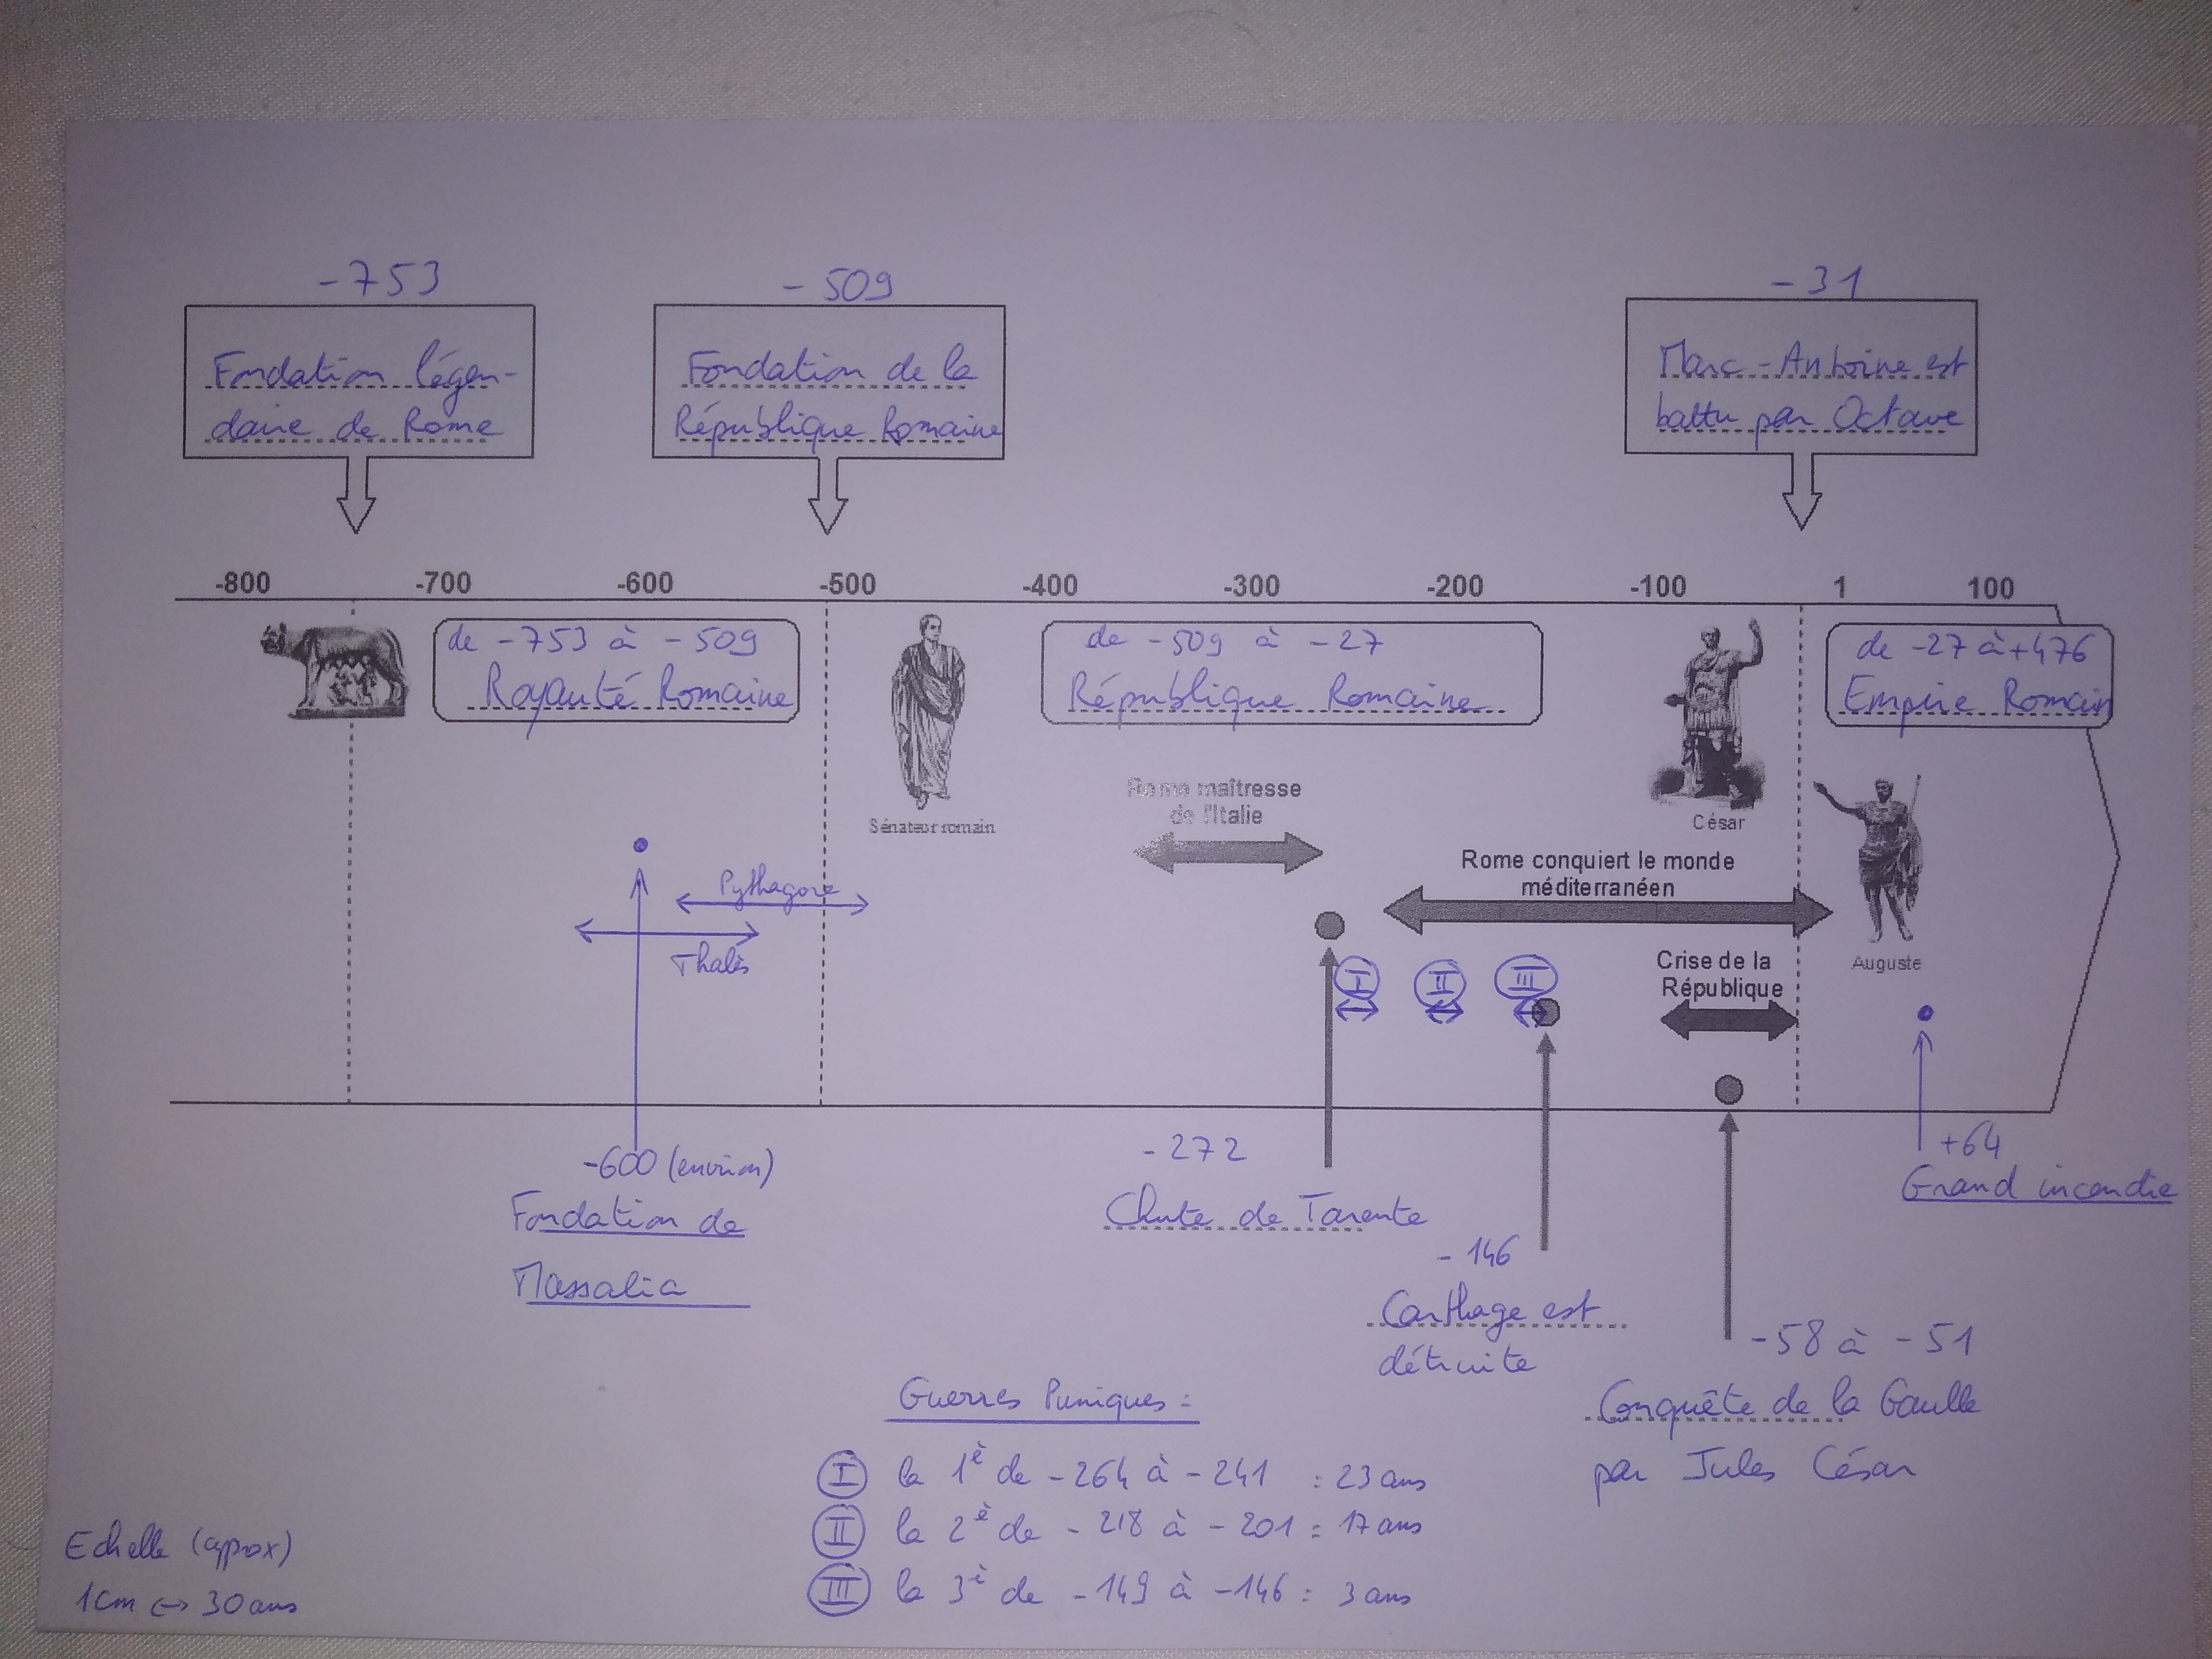 -753
-509
-31
Fondation légen-
daire de Rome
Fondation de la
République Romaine
Marc-Antoine est
battu par Octave
-800 -700 -600 -500 -400 -300 -200 -100 1 100
de -753 à -509
Royauté Romaine
de -509 à -27
République Romaine
de -27 à +476
Empire Romain
Sénateur romain
Rome maîtresse
de l'Italie
César
Rome conquiert le monde
méditerranéen
Pythagore
Thalès
I II III
Crise de la
République
Auguste
-600 (environ)
Fondation de
Massalia
-272
Chute de Tarente
-146
Carthage est
détruite
-58 à -51
Conquête de la Gaulle
par Jules César
+64
Grand incendie
Guerres Puniques :
I la 1è de -264 à -241 : 23 ans
II la 2è de -218 à -201 : 17 ans
III la 3è de -149 à -146 : 3 ans
Echelle (approx)
1cm ↔ 30 ans